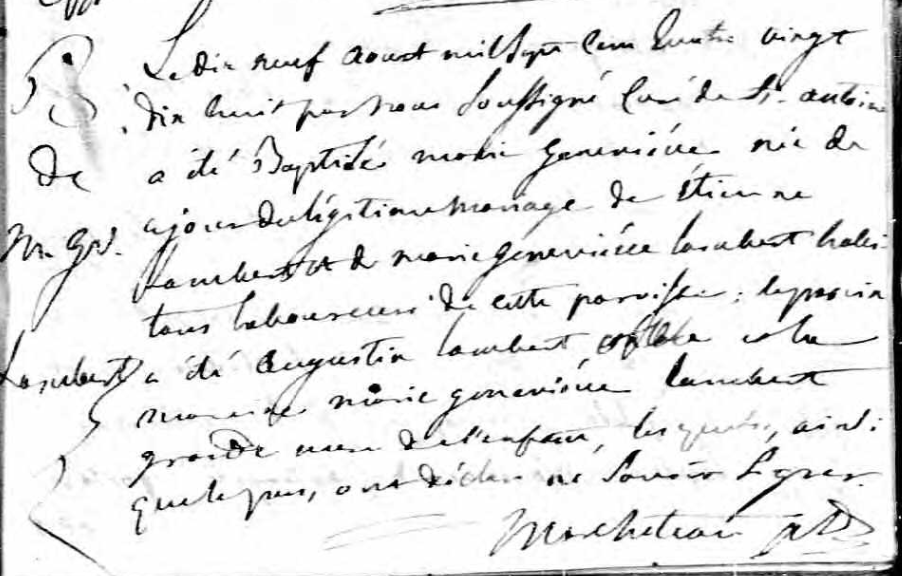 B.
de
M. Gv.
Lambert
Le dix neuf aoust mil sept cent quatre vingt
dix huit par nous soussigné curé de St. antoine
a été Baptisée marie geneviéve née de
ce jour du légitime mariage de Étienne
Lambert et de marie geneviéve lambert habi-
tans laboureurs de cette paroisse; le parain
a été augustin lambert, oncle et la
maraine marie geneviéve lambert
grande mere de l'enfant, lesquels, ainsi
que le pere, ont déclaré ne savoir signer.
Marcheteau ptre